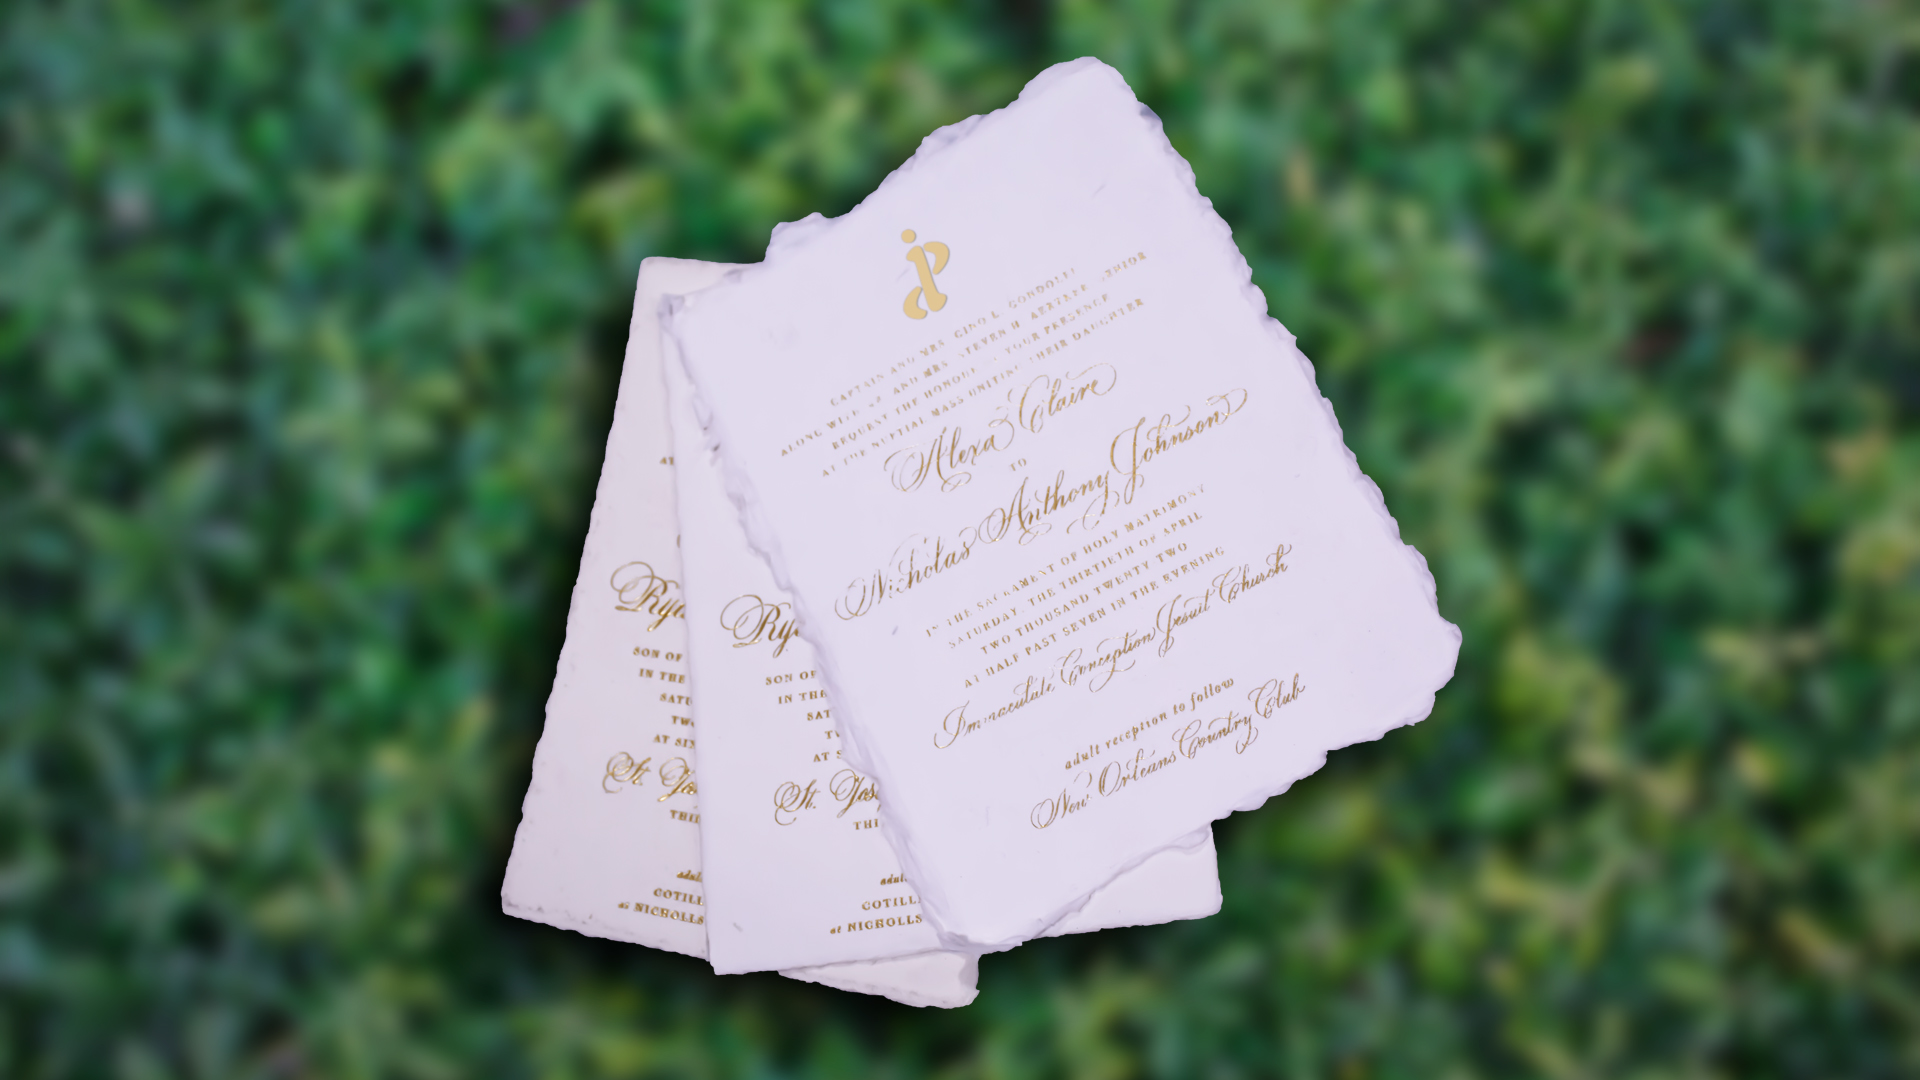 CAPTAIN AND MRS. GINO L. GONDOLFI
ALONG WITH AND MRS. STEVEN H.
REQUEST THE HONOUR YOUR PRESENCE
AT THE NUPTIAL MASS UNITING THEIR DAUGHTER
Alexa Claire
TO
Nicholas Anthony Johnson
IN THE SACRAMENT OF HOLY MATRIMONY
SATURDAY, THE THIRTIETH OF APRIL
TWO THOUSAND TWENTY TWO
AT HALF PAST SEVEN IN THE EVENING
Immaculate Conception Jesuit Church
adult reception to follow
New Orleans Country Club
Rya
SON OF
IN THE
SATU
TW
AT SIX
St. Jos
THI
adul
COTILL
at NICHOLLS
Ry
SON OF
IN THE
SAT
T
AT S
St. Jos
THI
adu
COTILL
at NICHOLLS